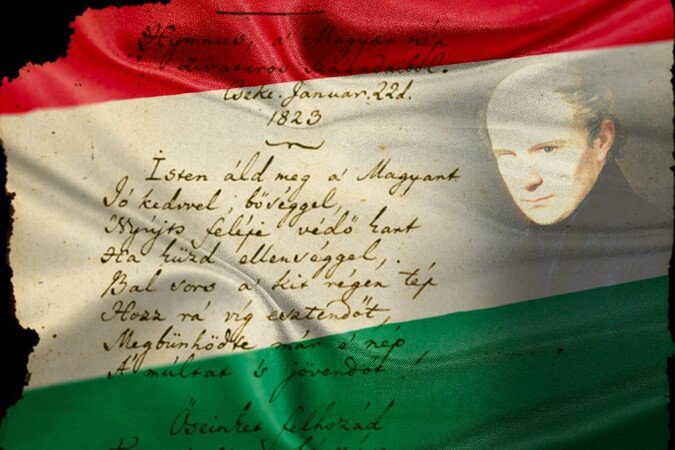 Hymnus, a' Magyar nép
zivataros századaiból.
Cseke. Januar. 22d.
1823
Isten áld meg a' Magyart
Jó kedvvel, bőséggel,
Nyújts feléje védő kart
Ha küzd ellenséggel,
Bal sors a' kit régen tép
Hozz rá víg esztendőt,
Megbünhödte már e' nép
A' múltat 's jövendőt!
Őseinket felhozád